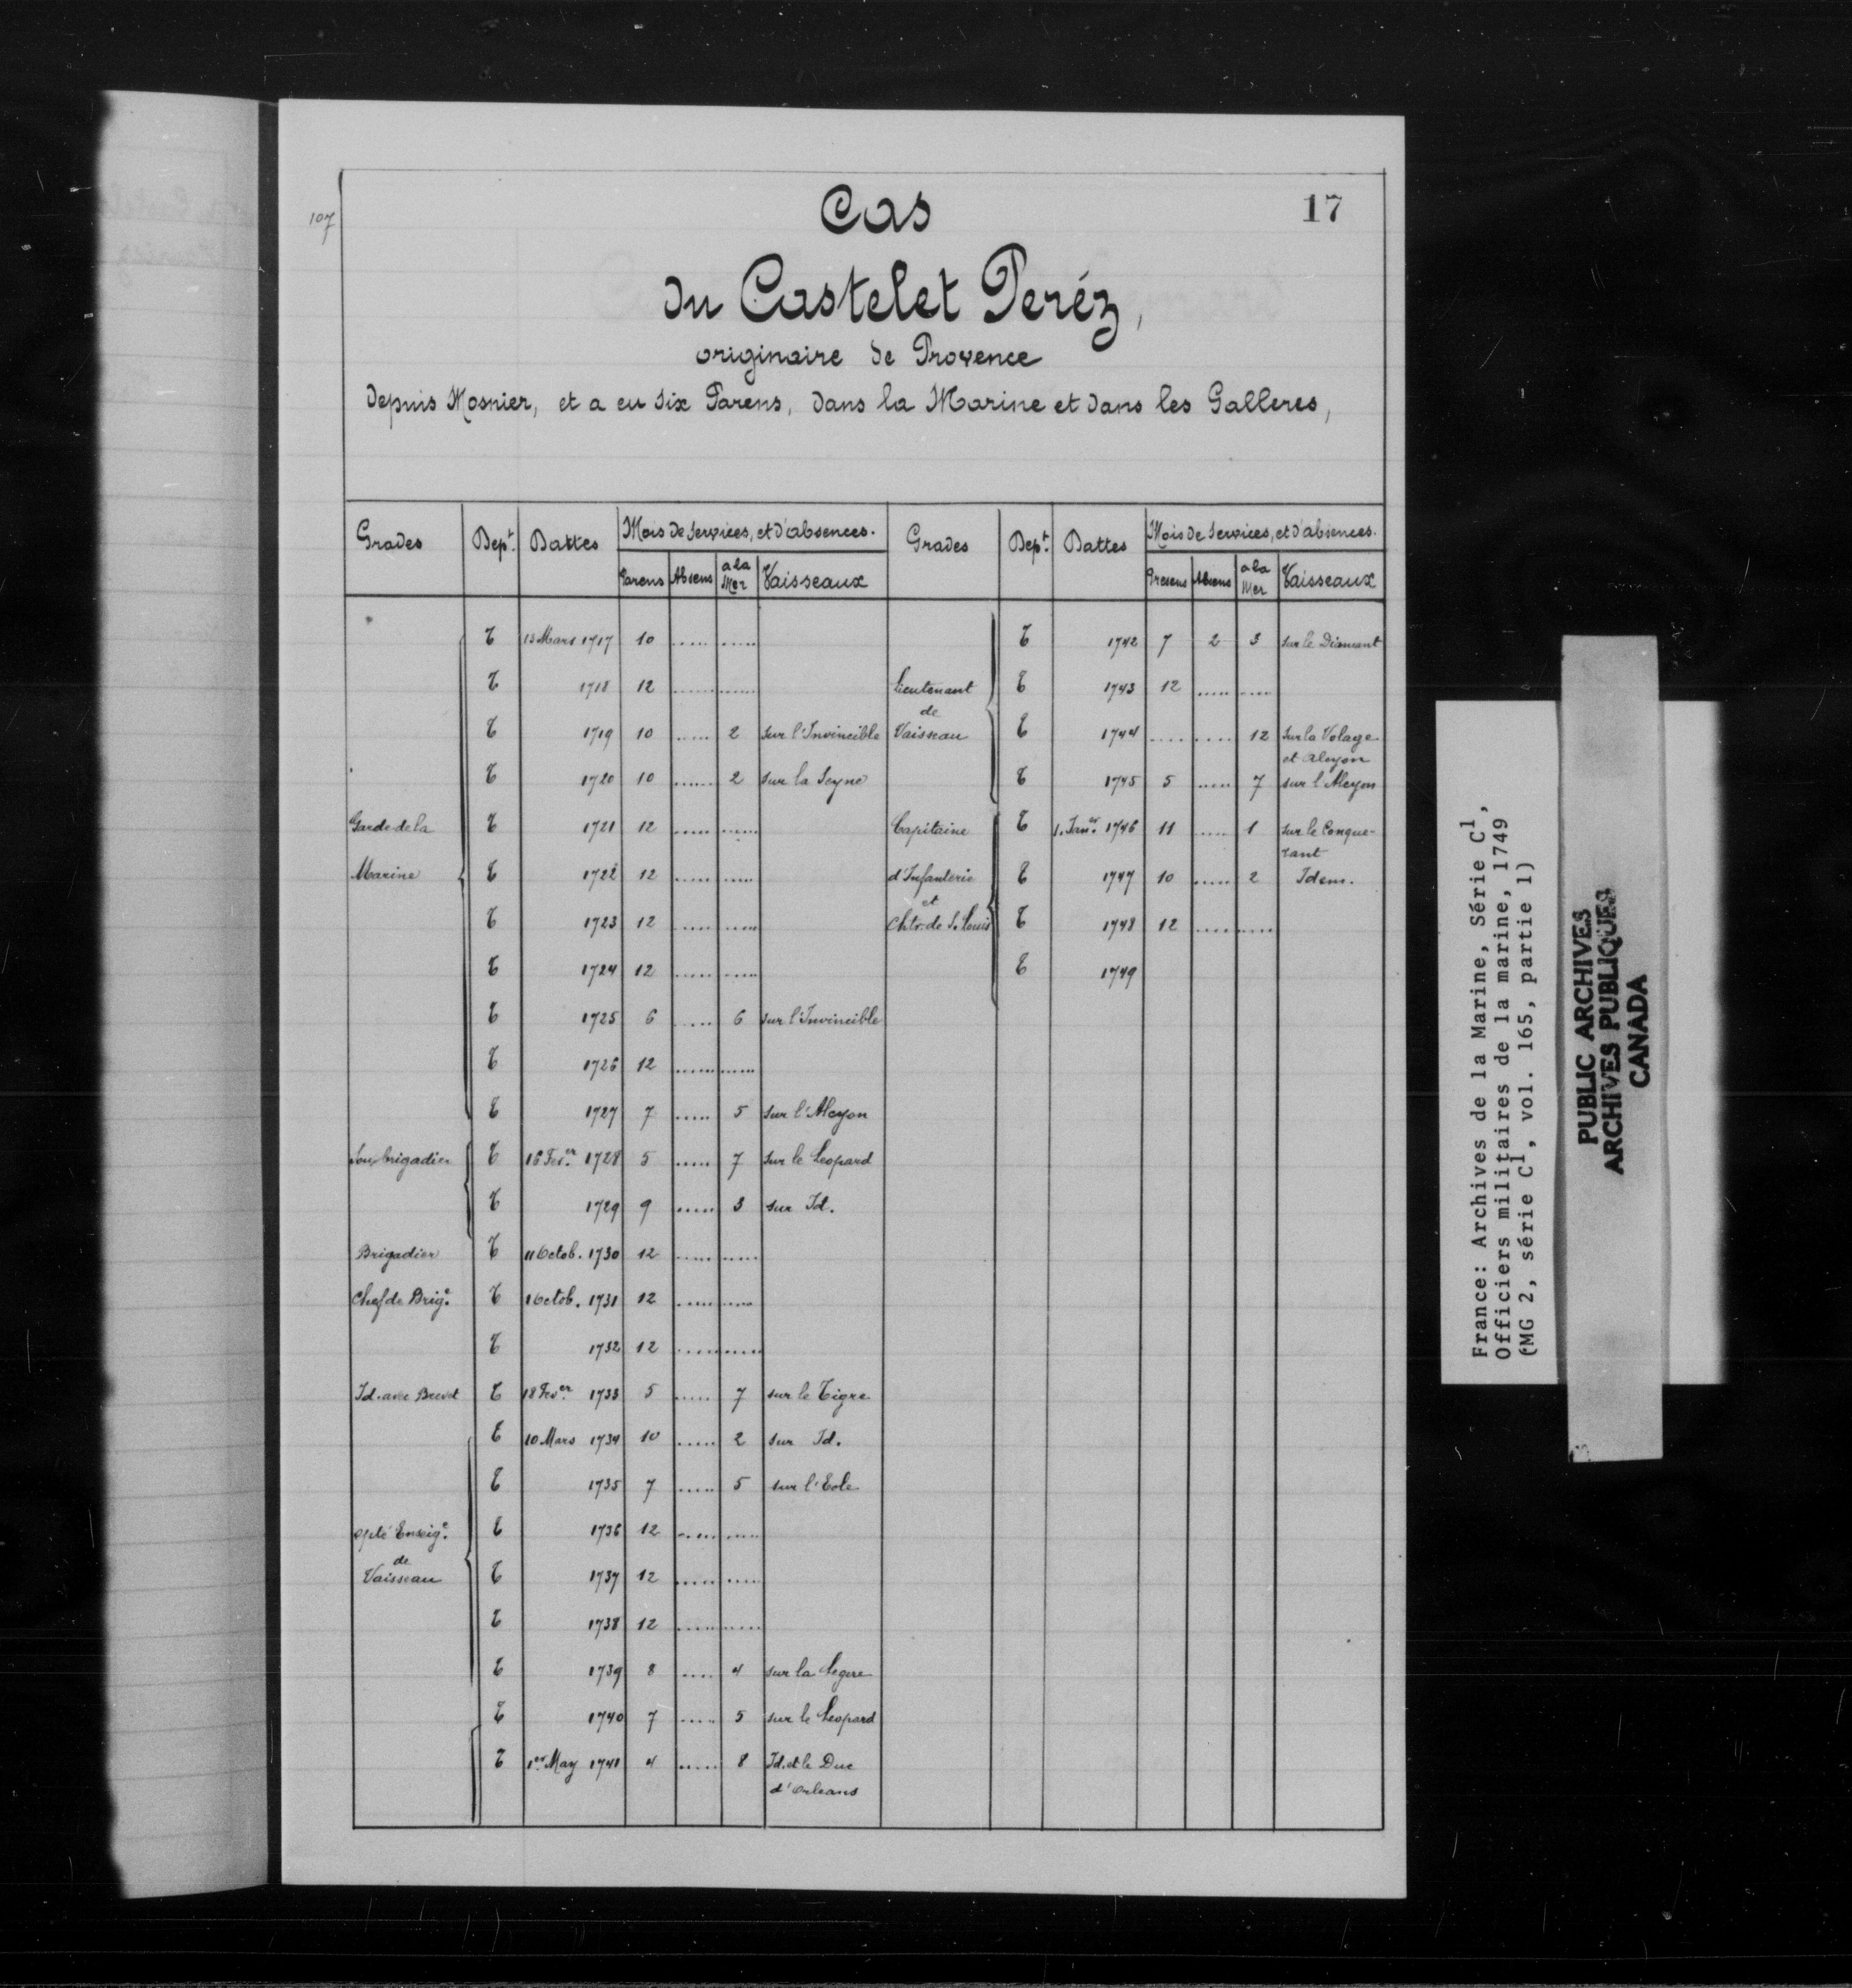 107
17
Cas
du Castelet Peréz,
originaire de Provence
Depuis Mosnier, et a eu six Parens, dans la Marine et dans les Galleres,
Grades Dept. Dattes Mois de Services, et d'absences. Grades Dept. Dattes Mois de Services, et d'absences.
Parens Absens a la Mer Vaisseaux Presens Absens a la Mer Vaisseaux
T 13 Mars 1717 10 ...... ......
T 1718 12 ...... ......
T 1719 10 ...... 2 sur l'Invincible
T 1720 10 ...... 2 sur la Seyne
Garde de la T 1721 12 ...... ......
Marine T 1722 12 ...... ......
T 1723 12 ...... ......
T 1724 12 ...... ......
T 1725 6 ...... 6 sur l'Invincible
T 1726 12 ...... ......
T 1727 7 ...... 5 sur l'Alcyon
Soubrigadier T 16 Fever. 1728 5 ...... 7 sur le Leopard
T 1729 9 ...... 3 sur Id.
Brigadier T 11 Octob. 1730 12 ...... ......
Chef de Brige. T 1 Octob. 1731 12 ...... ......
T 1732 12 ...... ......
Id. avec Brevet T 18 Fever. 1733 5 ...... 7 sur le Tigre
T 10 Mars 1734 10 ...... 2 sur Id.
T 1735 7 ...... 5 sur l'Eole
Enseige. T 1736 12 ...... ......
de
Vaisseau T 1737 12 ...... ......
T 1738 12 ...... ......
T 1739 8 ...... 4 sur la Legere
T 1740 7 ...... 5 sur le Leopard
T 1er May 1741 4 ...... 8 Id. et le Duc
d'Orleans
T 1742 7 2 3 sur le Diamant
Lieutenant T 1743 12 ...... ......
de
Vaisseau T 1744 ...... ...... 12 sur la Volage
et Alcyon
T 1745 5 ...... 7 sur l'Alcyon
Capitaine T 1. Janer. 1746 11 ...... 1 sur le Conque-
rant
d'Infanterie T 1747 10 ...... 2 Idem.
et
Chlr. de S. Louis T 1748 12 ...... ......
T 1749
France: Archives de la Marine, Série C1,
Officiers militaires de la marine, 1749
(MG 2, série C1, vol. 165, partie 1)
PUBLIC ARCHIVES
ARCHIVES PUBLIQUES
CANADA